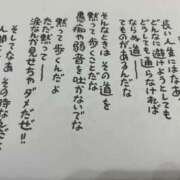 長い人生にはなあ
どんなに避けようとしても
どうしても通らなければ
ならぬ道━
てものがあるんだな
そんなときはその道を
黙って歩くことだな
愚痴や弱音を吐かないでな
黙って歩くんだよ
ただ黙って━
涙なんか見せちゃダメだぜ!!
そしてなあその時なんだよ